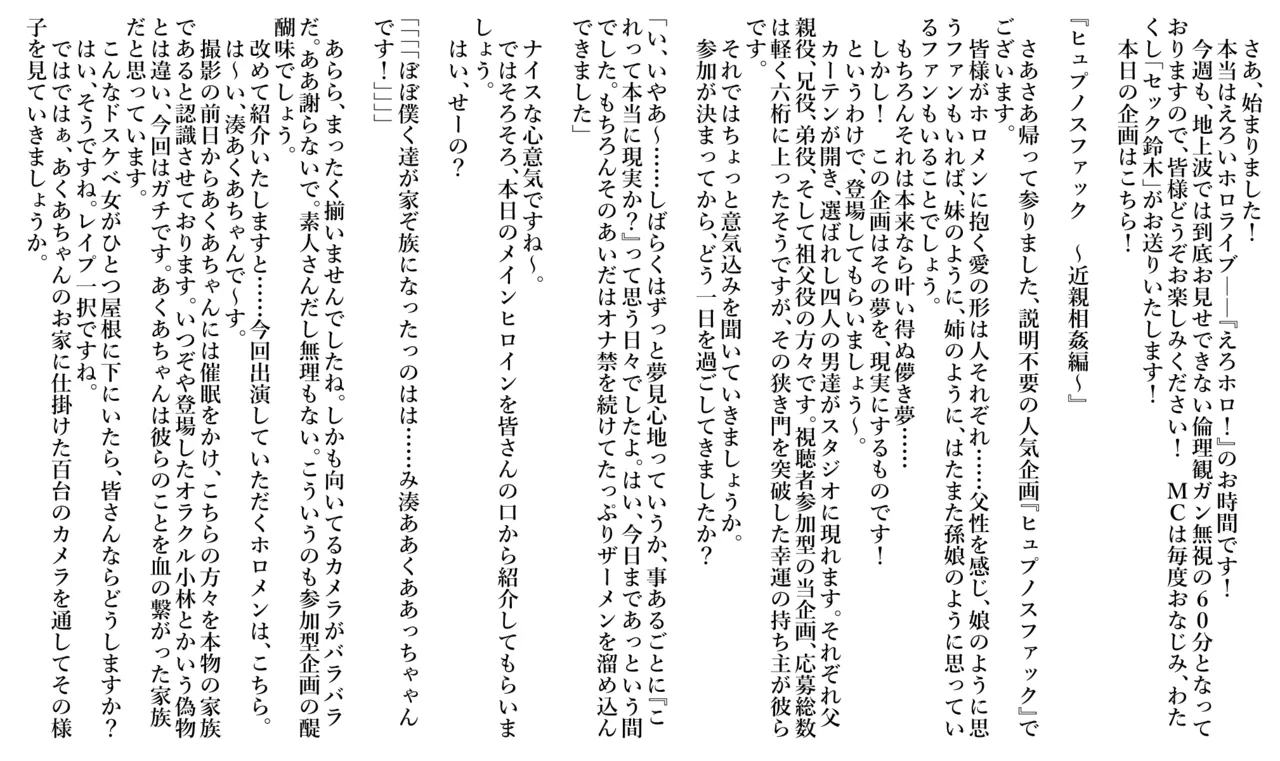 さあ、始まりました！
本当はえろいホロライブ――『えろホロ！』のお時間です！
今週も、地上波では到底お見せできない倫理観ガン無視の６０分となって
おりますので、皆様どうぞお楽しみください！　ＭＣは毎度おなじみ、わた
くし「セック鈴木」がお送りいたします！
本日の企画はこちら！
『ヒュプノスファック　～近親相姦編～』
さあさあ帰って参りました、説明不要の人気企画『ヒュプノスファック』で
ございます。
皆様がホロメンに抱く愛の形は人それぞれ……父性を感じ、娘のように思
うファンもいれば、妹のように、姉のように、はたまた孫娘のように思ってい
るファンもいることでしょう。
もちろんそれは本来なら叶い得ぬ儚き夢……
しかし！　この企画はその夢を、現実にするものです！
というわけで、登場してもらいましょう～。
カーテンが開き、選ばれし四人の男達がスタジオに現れます。それぞれ父
親役、兄役、弟役、そして祖父役の方々です。視聴者参加型の当企画、応募総数
は軽く六桁に上ったそうですが、その狭き門を突破した幸運の持ち主が彼ら
です。
それではちょっと意気込みを聞いていきましょうか。
参加が決まってから、どう一日を過ごしてきましたか？
「い、いやあ～……しばらくはずっと夢見心地っていうか、事あるごとに『こ
れって本当に現実か？』って思う日々でしたよ。はい、今日まであっという間
でした。もちろんそのあいだはオナ禁を続けてたっぷりザーメンを溜め込ん
できました」
ナイスな心意気ですね～。
ではそろそろ、本日のメインヒロインを皆さんの口から紹介してもらいま
しょう。
はい、せーの？
「「「「ぼぼ僕く達が家ぞ族になったっのはは……み湊ああくああっちゃゃん
です！」」」」
あらら、まったく揃いませんでしたね。しかも向いてるカメラがバラバラ
だ。ああ謝らないで。素人さんだし無理もない。こういうのも参加型企画の醍
醐味でしょう。
改めて紹介いたしますと……今回出演していただくホロメンは、こちら。
は～い、湊あくあちゃんで～す。
撮影の前日からあくあちゃんには催眠をかけ、こちらの方々を本物の家族
であると認識させております。いつぞや登場したオラクル小林とかいう偽物
とは違い、今回はガチです。あくあちゃんは彼らのことを血の繋がった家族
だと思っています。
こんなドスケベ女がひとつ屋根に下にいたら、皆さんならどうしますか？
はい、そうですね。レイプ一択ですね。
ではではぁ、あくあちゃんのお家に仕掛けた百台のカメラを通してその様
子を見ていきましょうか。